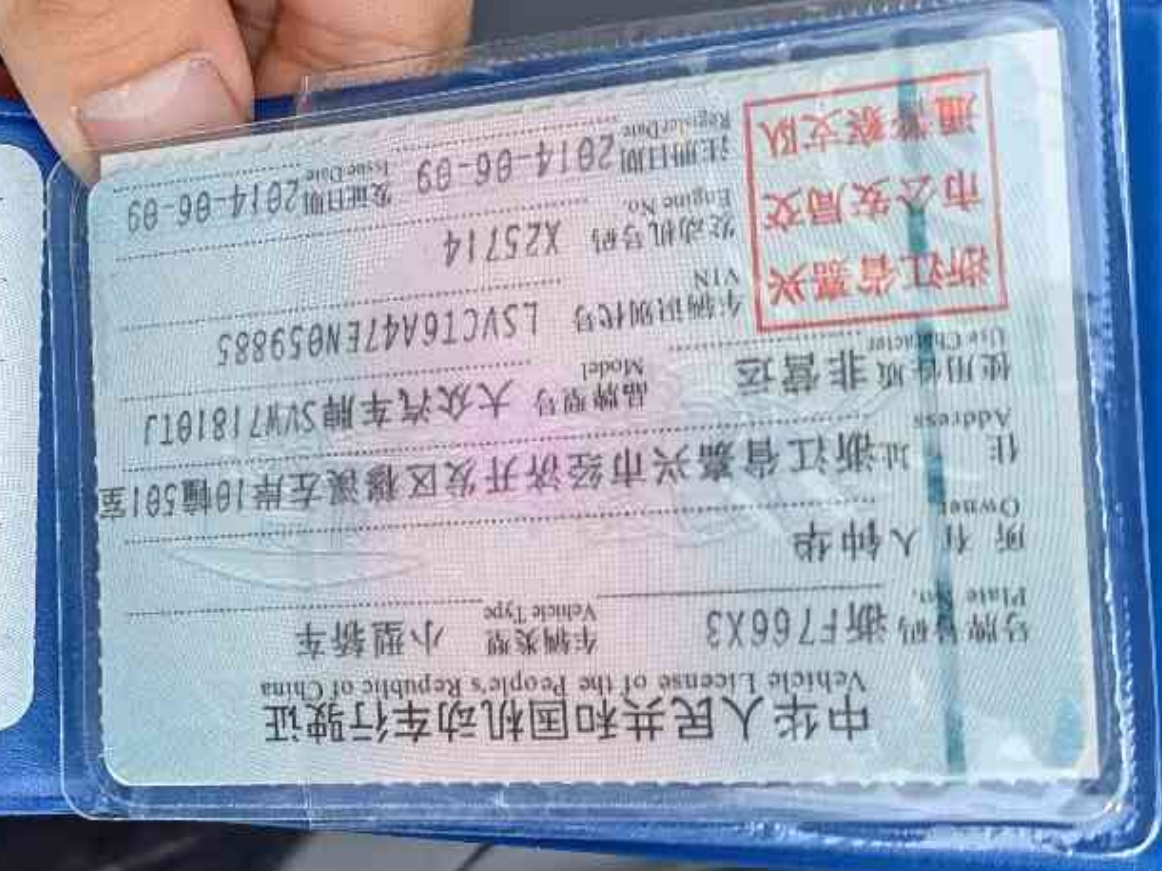 中华人民共和国机动车行驶证
Vehicle License of the People's Republic of China
号牌号码 浙F766X3 车辆类型 小型轿车
Plate No. Vehicle Type
所有人 钟华
Owner
住址 浙江省嘉兴市经济开发区穆溪左岸10幢501室
Address
使用性质 非营运 品牌型号 大众汽车牌SVW71810TJ
Use Character Model
浙江省嘉兴
市公安局交
通警察支队
车辆识别代号 LSVCT6A47EN059885
VIN
发动机号码 X25714
Engine No.
注册日期 2014-06-09 发证日期 2014-06-09
Register Date Issue Date